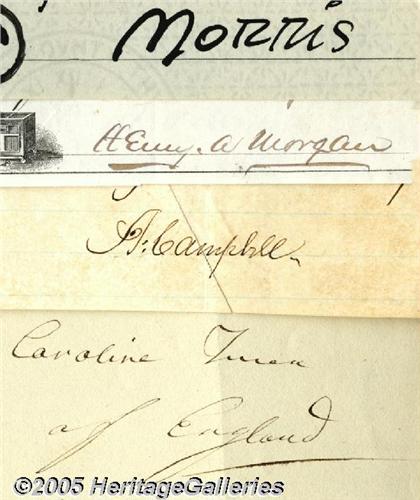 Morris
Henry. A Morgan
A. Campbell.
Caroline
of England
©2005 HeritageGalleries